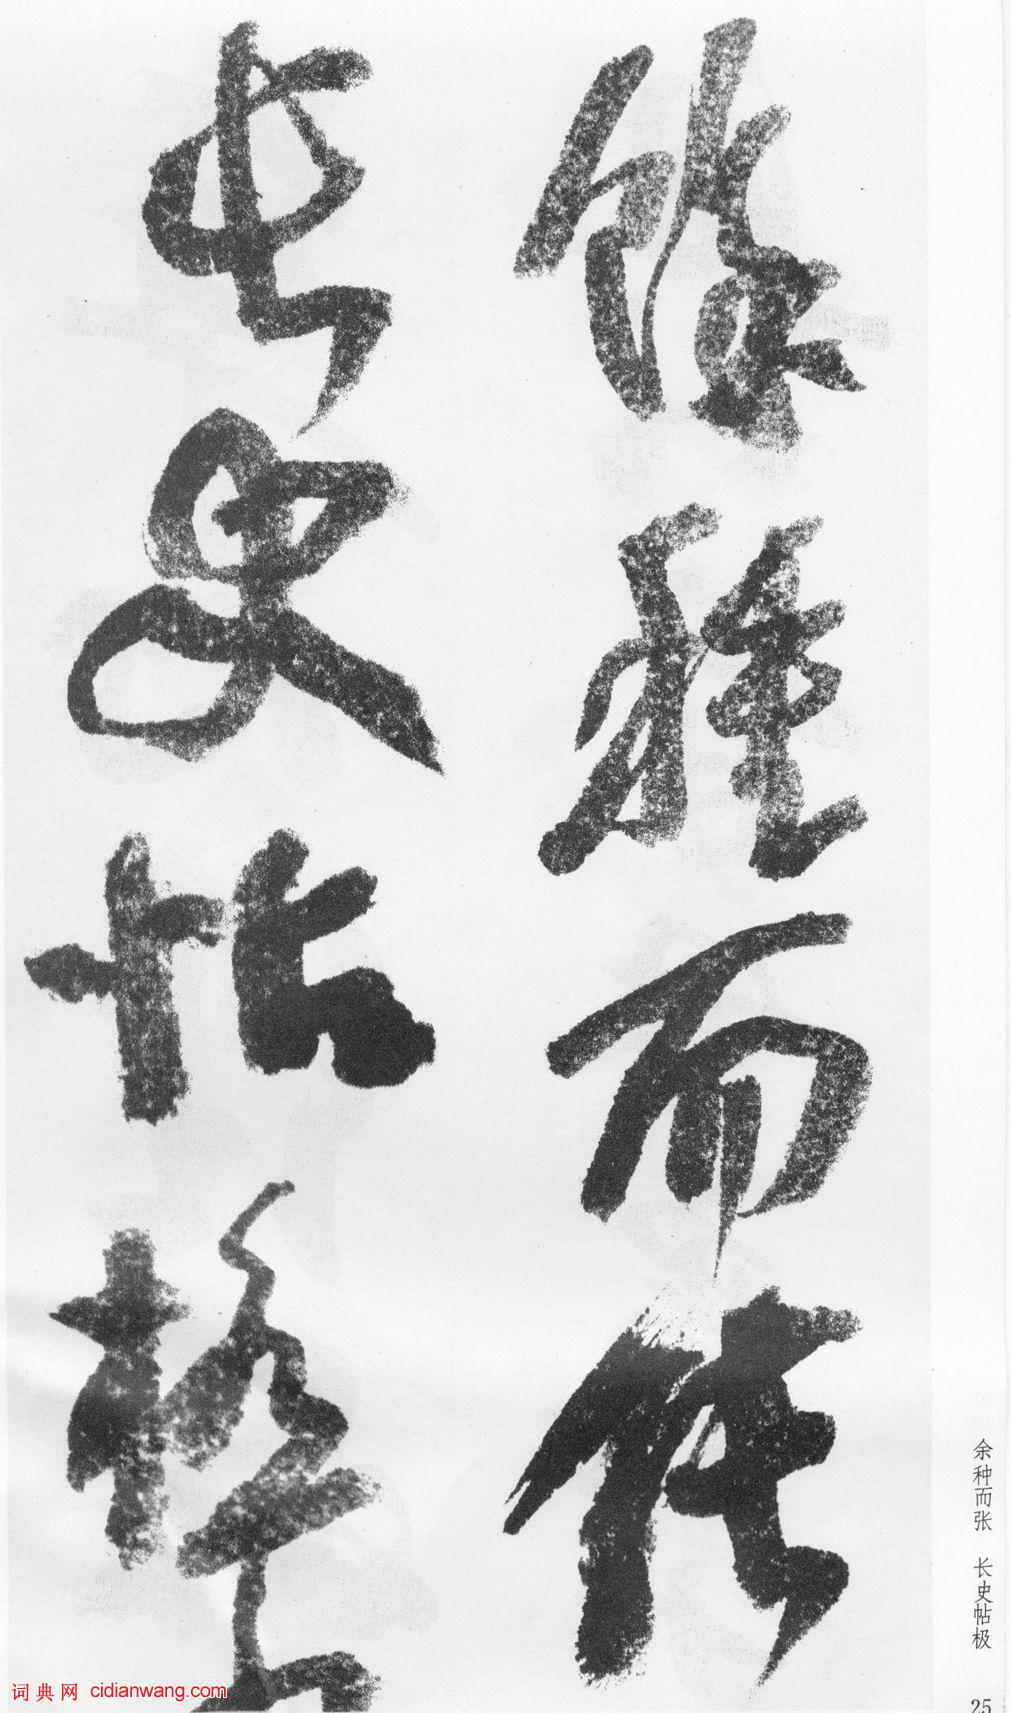 餘種而張
長史帖極
余种而张 长史帖极
25
词典网 cidianwang.com